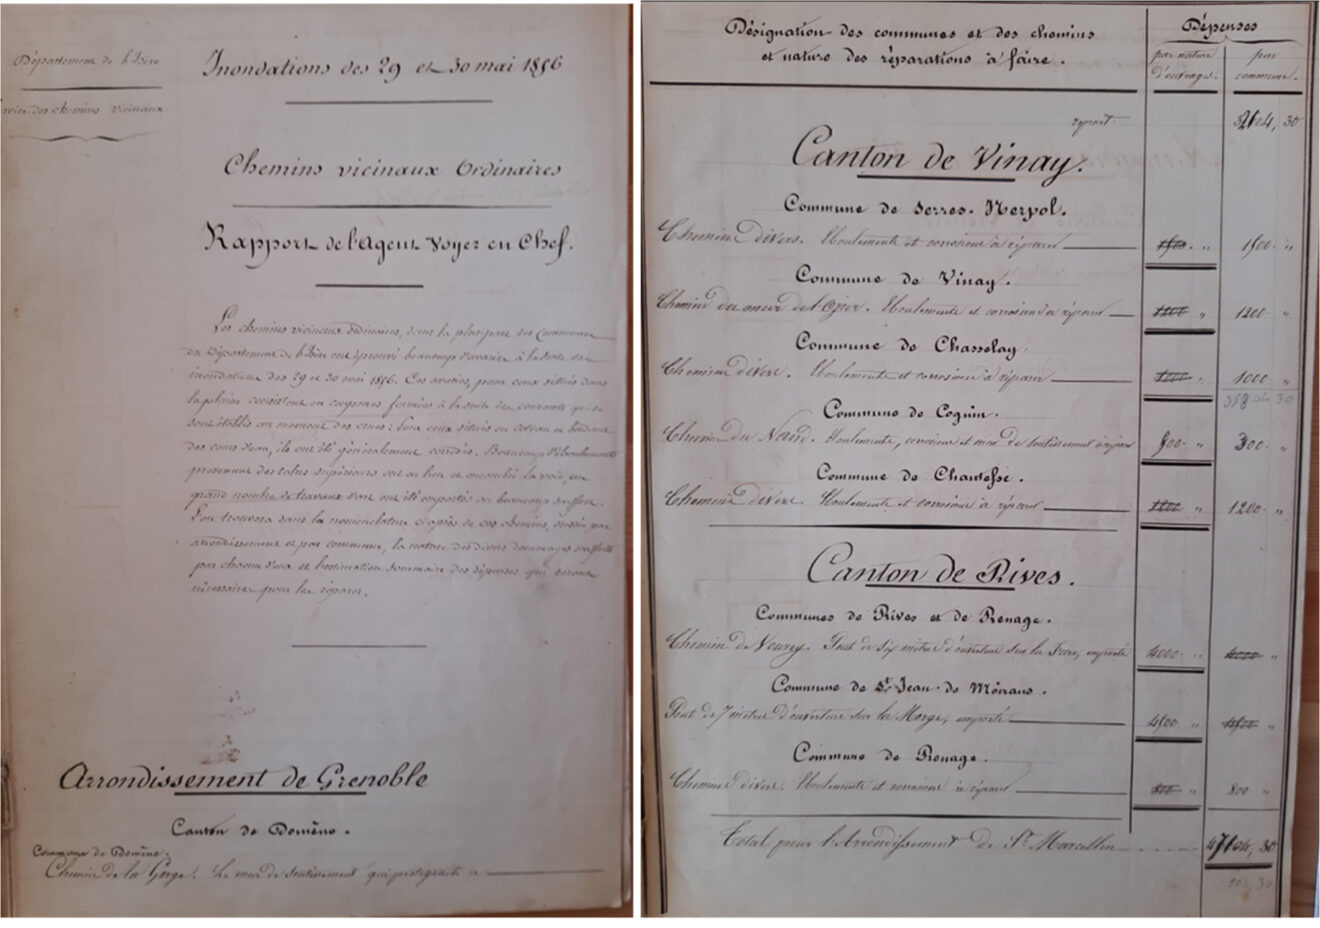 Département de l'Isère
vice des chemins vicinaux
Inondations des 29 et 30 mai 1856
Chemins vicinaux Ordinaires
Rapport de l'Agent Voyer en Chef.
Les chemins vicinaux ordinaires, dans la plus part des Communes
du Département de l'Isère ont éprouvé beaucoup d'avaries à la suite des
inondations des 29 et 30 mai 1856. Ces avaries, pour ceux situés dans
la plaine consistent en coupures formées à la suite des courants qui se
sont établis au moment des crues: pour ceux situés en coteau et bord
des cours d'eau, ils ont été généralement corrodés. Beaucoup d'éboulements
provenant des talus supérieurs ont eu lieu et encombré la voie, un
grand nombre de travaux d'art ont été emportés ou beaucoup souffert.
L'on trouvera dans la nomenclature ci-après de ces chemins, par
arrondissement et par commune, la nature des divers dommages soufferts
par chacun d'eux et l'estimation sommaire des dépenses qui seront
nécessaires pour les réparer.
Arrondissement de Grenoble
Canton de Domène.
Commune de Domène.
Chemin de la Gorge. Le mur de soutènement qui protégeait ce
Désignation des communes et des chemins
et nature des réparations à faire.
Dépenses
par nature d'ouvrages.
par commune.
report 04, 30
Canton de Vinay.
Commune de Serres-Nerpol.
Chemins divers. Eboulements et corrosions à réparer 1500 " 1500 "
Commune de Vinay.
Chemin du mur de Eboulements et corrosions à réparer 1200 " 1200 "
Commune de Chasselay.
Chemins divers. Eboulements et corrosions à réparer 1000 " 1000 "
04 30
Commune de Cognin.
Chemin du Nant. Eboulements, corrosions et mur de soutènement à réparer 300 "
Commune de Chantesse.
Chemins divers. Eboulements et corrosions à réparer 1200 " 1200 "
Canton de Rives.
Communes de Rives et de Renage.
Chemin de Vourey. Pont de six mètres d'ouverture sur la Fure, emporté 4000 " 4000 "
Commune de St Jean de Moirans.
Pont de 7 mètres d'ouverture sur la Morge, emporté 4500 " 4500 "
Commune de Renage.
Chemins divers. Eboulements et corrosions à réparer 800 " 800 "
Total pour l'Arrondissement de St Marcellin 04, 30
104, 30